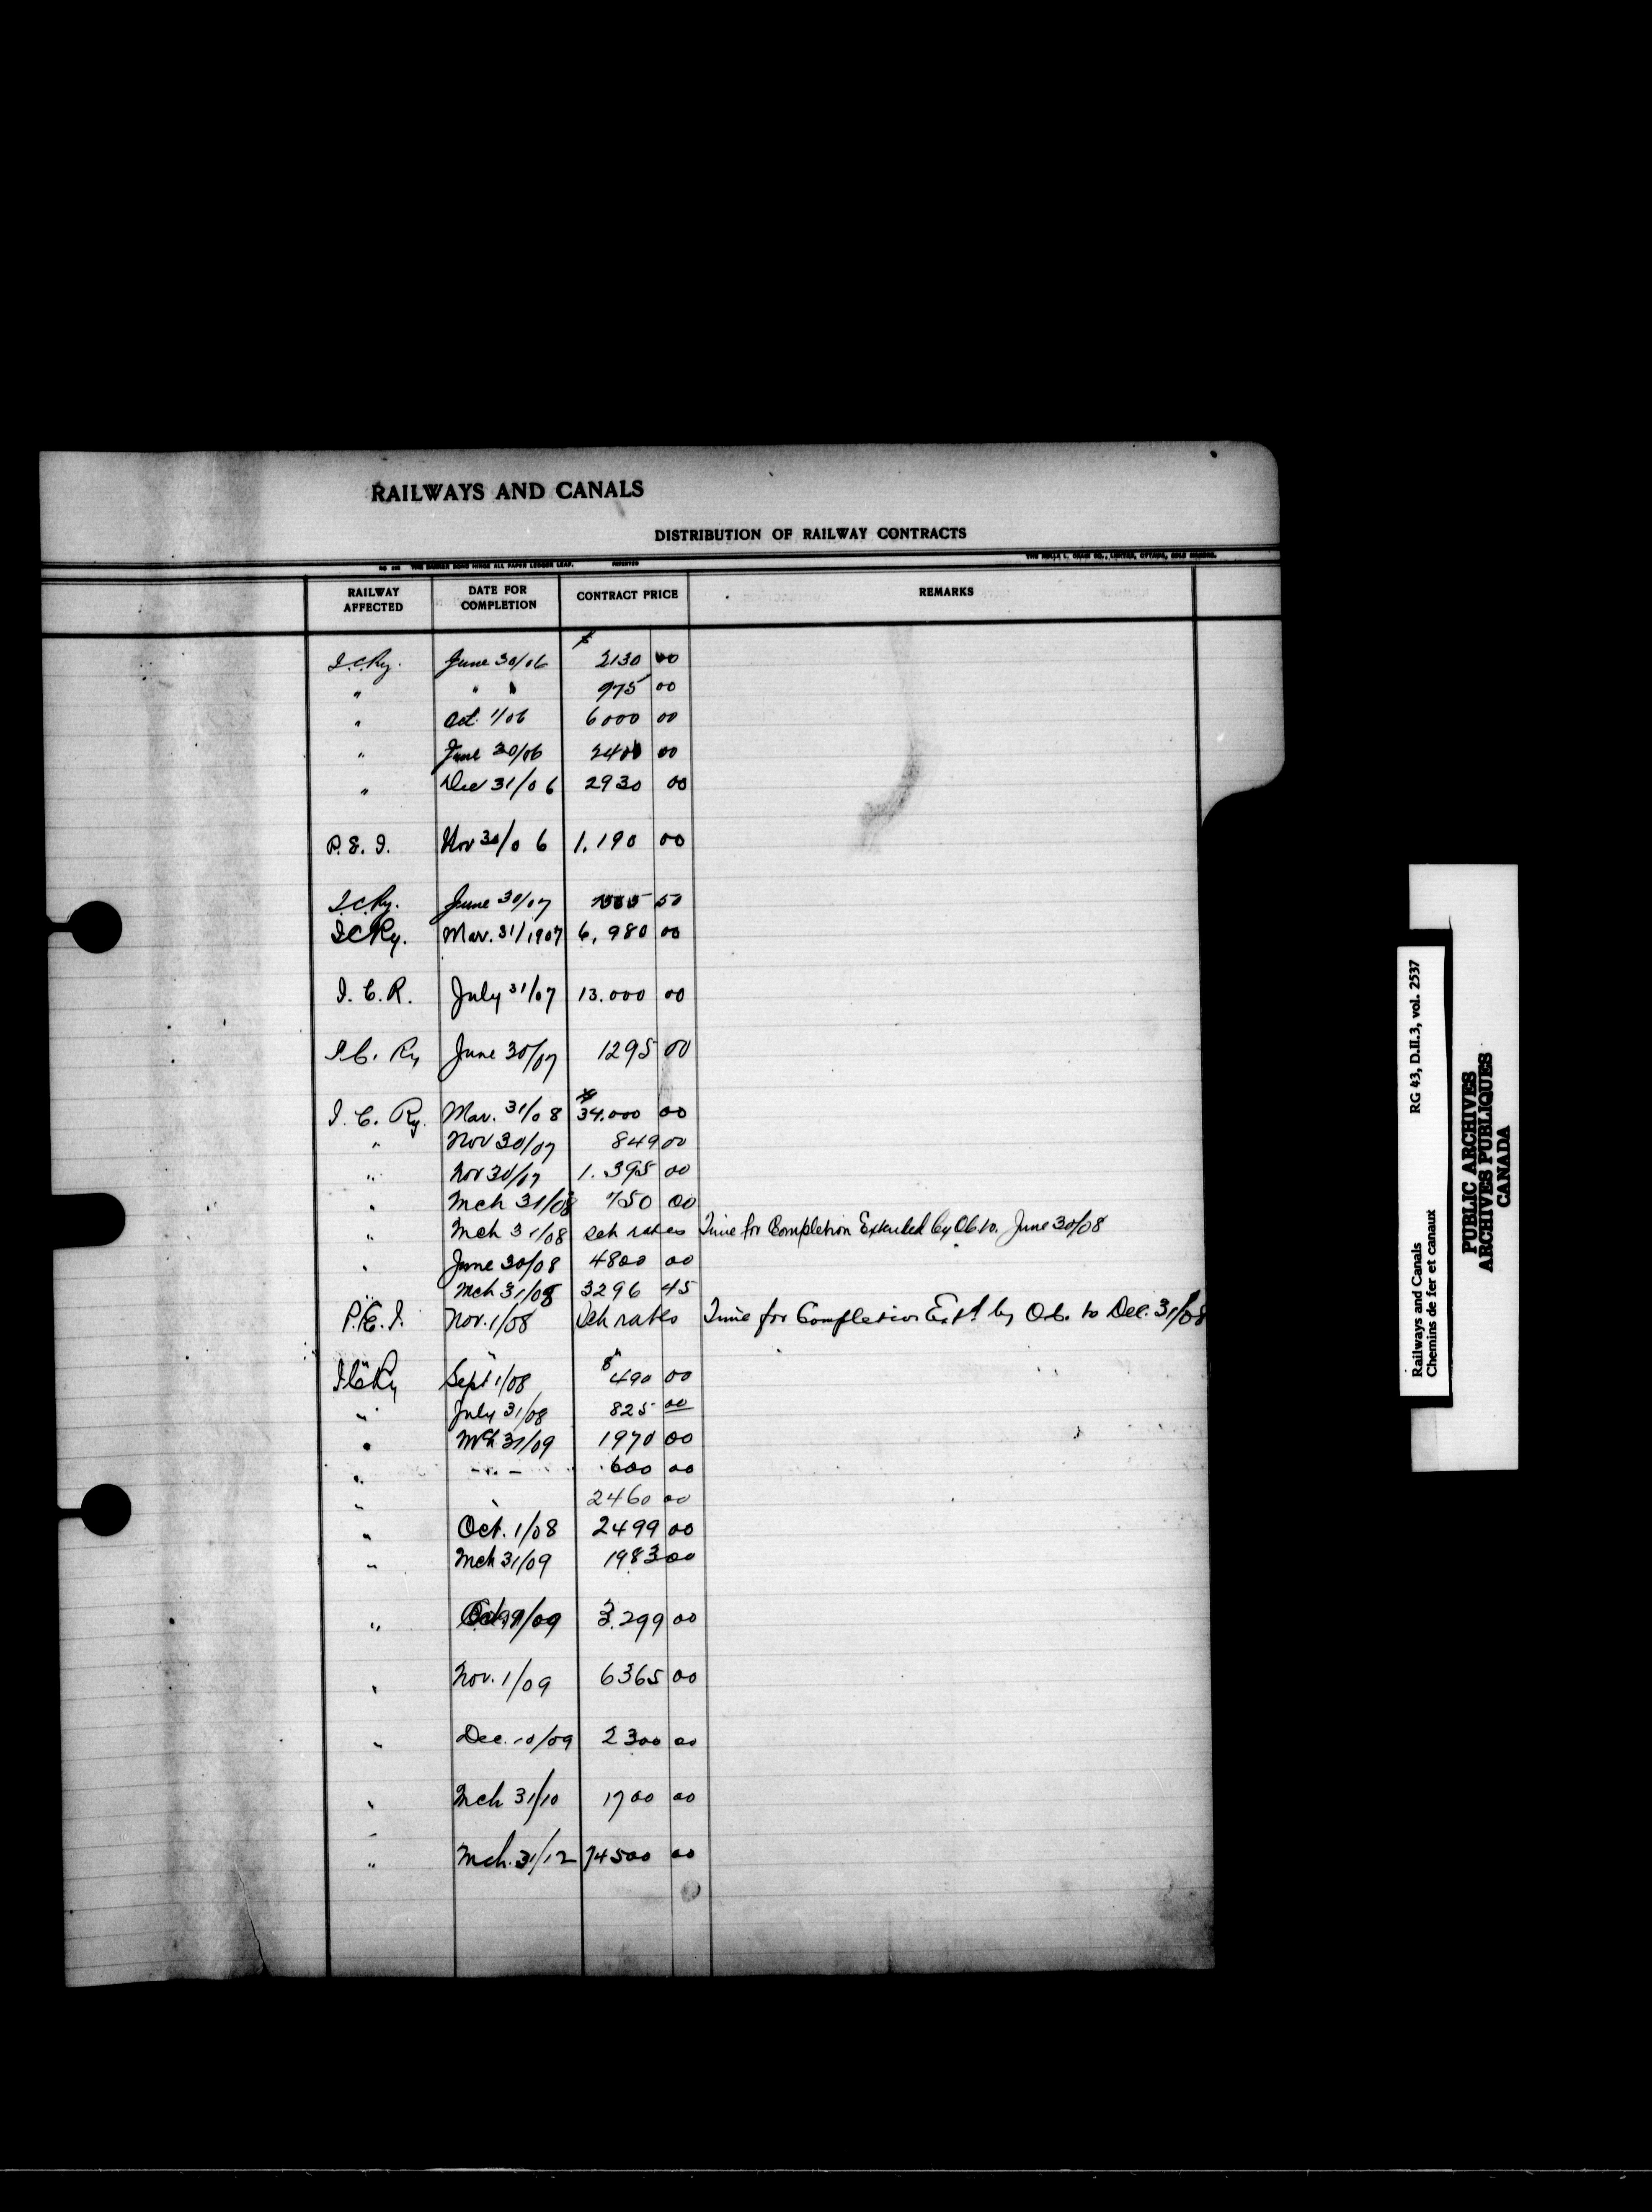 RAILWAYS AND CANALS
DISTRIBUTION OF RAILWAY CONTRACTS
RAILWAY AFFECTED DATE FOR COMPLETION CONTRACT PRICE REMARKS
I.C.Ry. June 30/06 $ 2130 00
" " " 975 00
" Oct. 1/06 6000 00
" June 30/06 2400 00
" Dec 31/06 2930 00
P.E.I. Nov 30/06 1,190 00
I.C.Ry. June 30/07 50
I.C.Ry. Mar. 31/1907 6,980 00
I.C.R. July 31/07 13.000 00
I.C. Ry June 30/07 1295 00
I.C. Ry. Mar. 31/08 $ 34.000 00
" Nov 30/07 849 00
" Nov 30/07 1.395 00
" Mch 31/08 750 00
" Mch 31/08 Sch rates Time for Completion Extended by O.C. to. June 30/08
" June 30/08 4800 00
" Mch 31/08 3296 45
P.E.I. Nov. 1/08 Sch rates Time for Completion Extd by O.C. to Dec. 31/08
I.C.Ry Sept 1/08 $ 490 00
" July 31/08 825 00
" Mch 31/09 1970 00
" - " - 600 00
" " 2460 00
" Oct. 1/08 2499 00
" Mch 31/09 1983 00
" /09 3.299 00
" Nov. 1/09 6365 00
" Dec. 10/09 2300 00
" Mch 31/10 1700 00
" Mch. 31/12 74500 00
RG 43, D.II.3, vol. 2537
Railways and Canals
Chemins de fer et canaux
PUBLIC ARCHIVES
ARCHIVES PUBLIQUES
CANADA